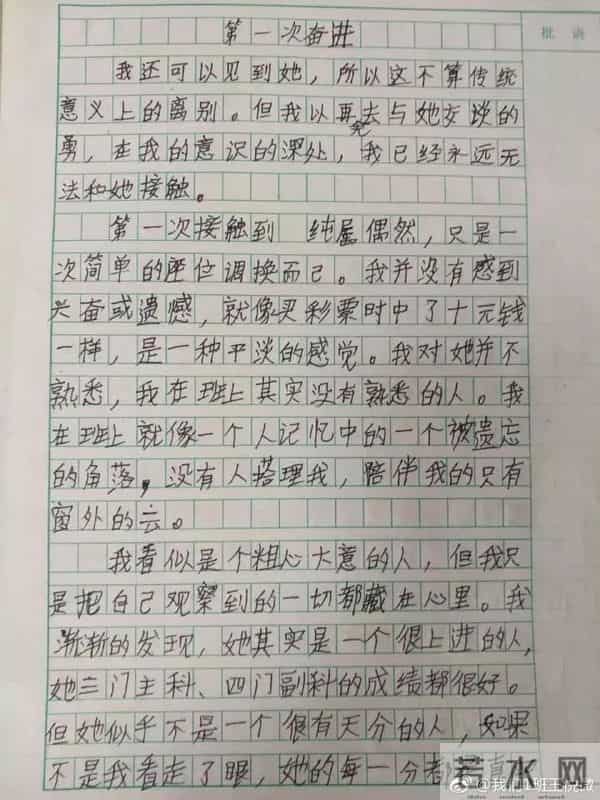 批语
第一次奋进
我还可以见到她，所以这不算传统
意义上的离别。但我以再去与她交谈的
勇，在我的意识的深处，我已经永远无
法和她接触。
第一次接触到 纯属偶然，只是一
次简单的座位调换而已。我并没有感到
兴奋或遗憾，就像买彩票时中了十元钱
一样，是一种平淡的感觉。我对她并不
熟悉，我在班上其实没有熟悉的人。我
在班上就像一个人记忆中的一个被遗忘
的角落，没有人搭理我，陪伴我的只有
窗外的云。
我看似是个粗心大意的人，但我只
是把自己观察到的一切都藏在心里。我
渐渐的发现，她其实是一个很上进的人，
她三门主科、四门副科的成绩都很好。
但她似乎不是一个很有天分的人，如果
不是我看走了眼，她的每一分都
若水网
@我们1班王悦微